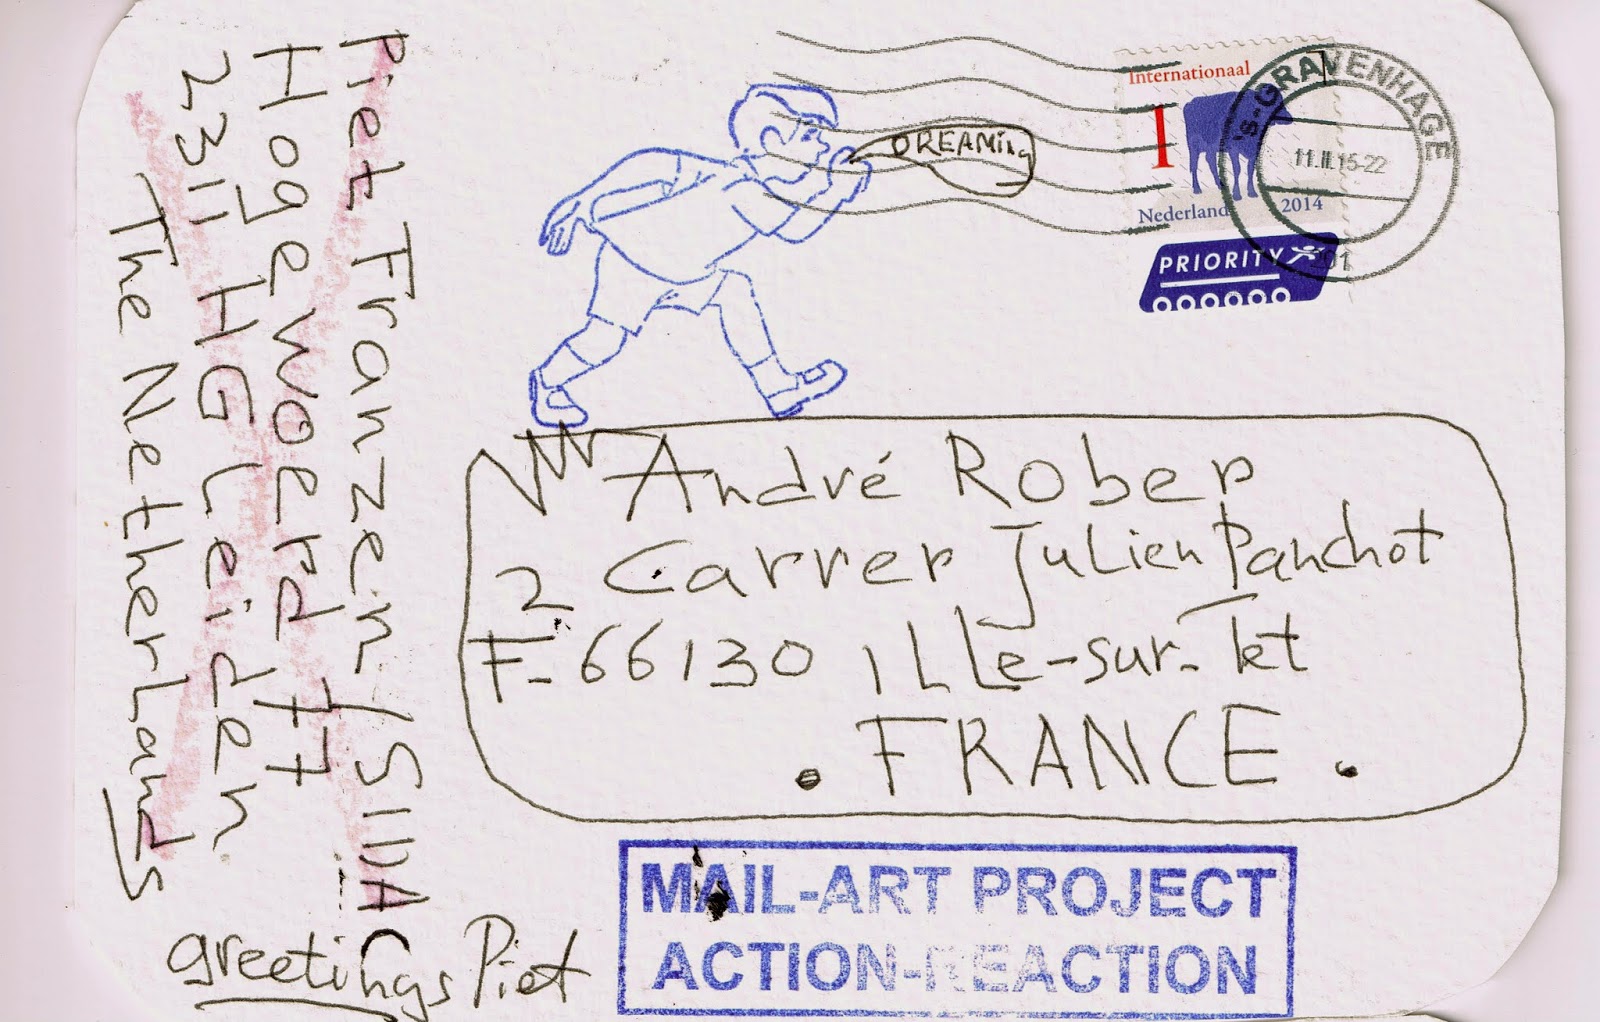 Piet Franzen/SIDAC
Hogewoerd 77
2311 HG Leiden
The Netherlands
greetings Piet
DREAMing
Internationaal
1
Nederland 2014
PRIORITY
'S-GRAVENHAGE
11.II.15-22
André Rober
2 Carrer Julien Panchot
F-66130 ILLe-sur-Tet
. FRANCE .
MAIL-ART PROJECT
ACTION-REACTION